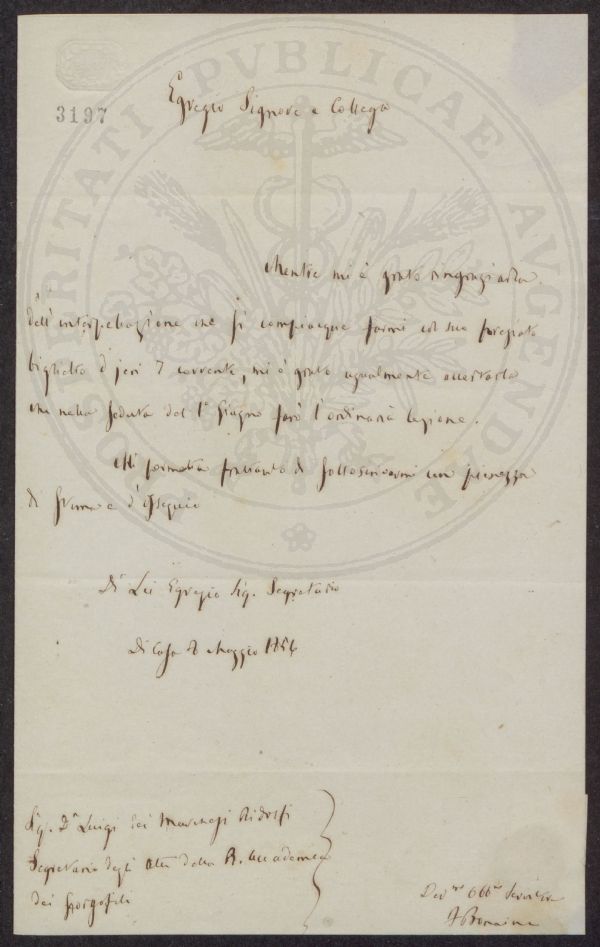 3197
Egregio Signore e Collega
Mentre mi è grato ringraziarla
dell'interpellazione che si compiacque farmi col suo pregiato
biglietto d'jeri 7 corrente, mi è grato ugualmente accertarla
che nella seduta del 1° Giugno farò l'ordinaria lezione.
Mi permetta frattanto di sottoscrivermi con pienezza
di stima e d'ossequio
Di Lei Egregio Sig. Segretario
Di Casa 8 Maggio 1856
Sig. Dr Luigi dei Marchesi Ridolfi
Segretario degli Atti della R. Accademia
dei Georgofili
Dev.mo Obb.mo Servitore
PROSPERITATI PVBLICAE AVGENDAE